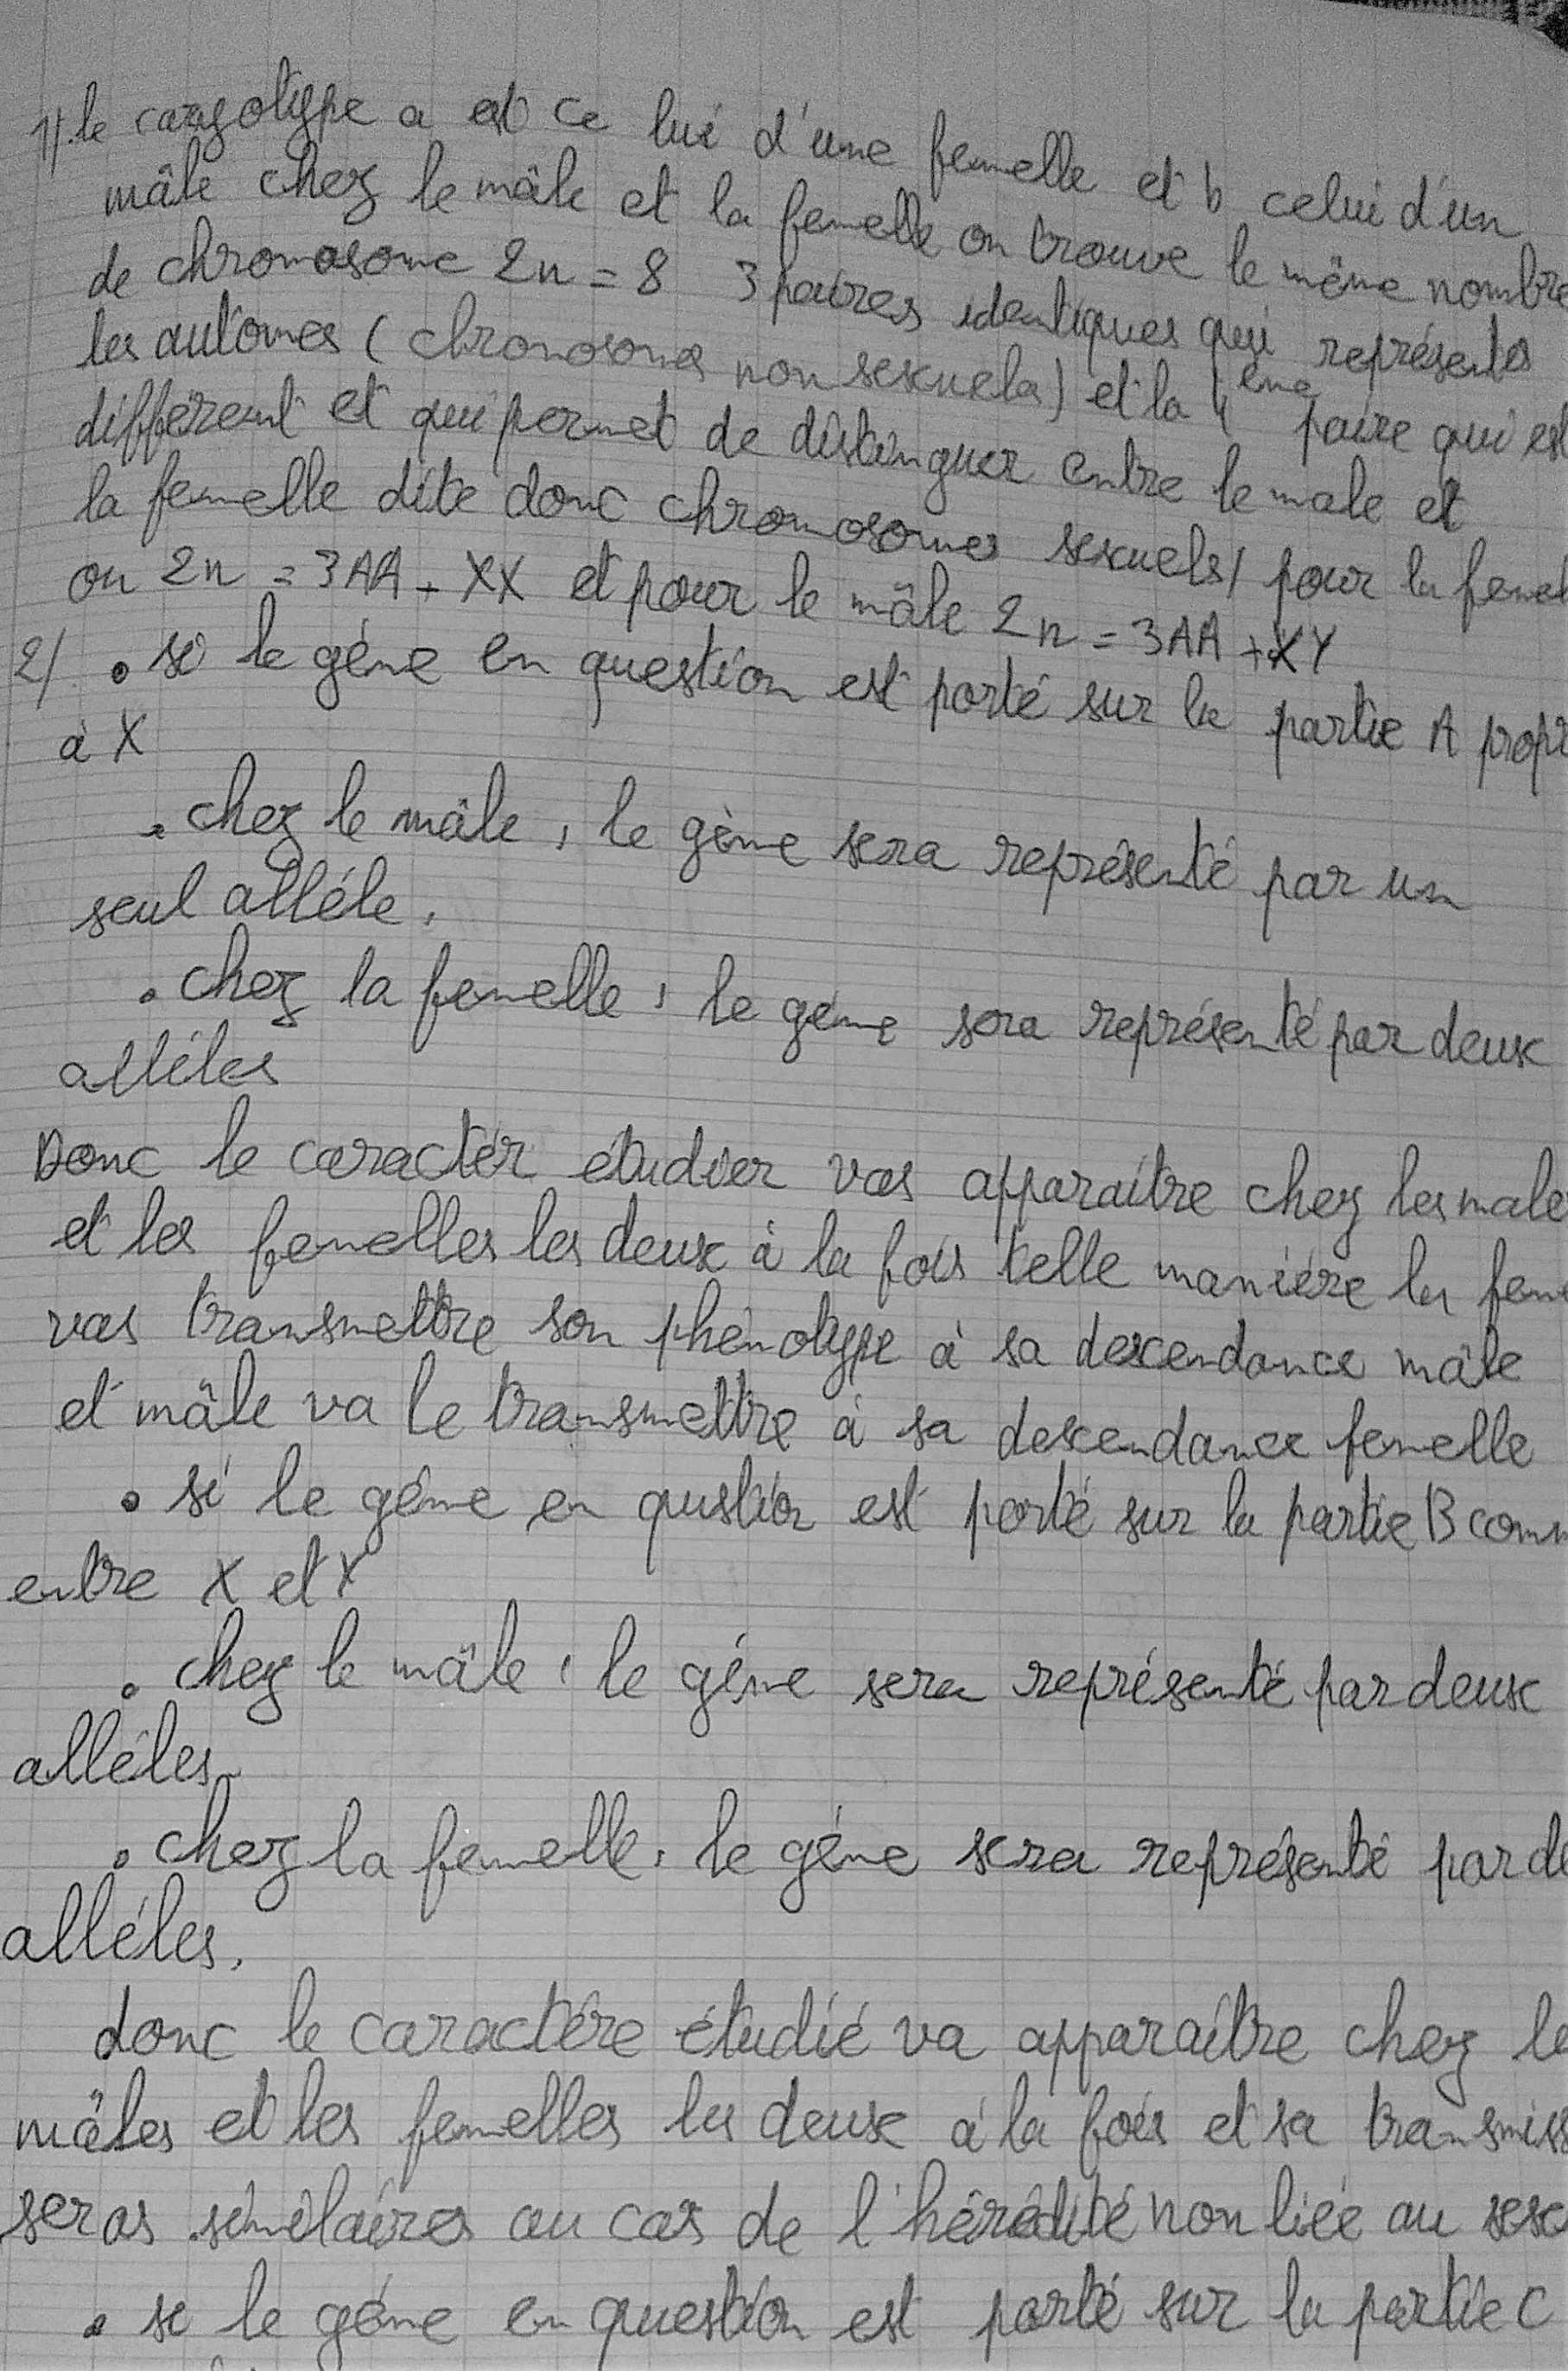 1/. le caryotype a est ce lui d'une femelle et b celui d'un
mâle chez le mâle et la femelle on trouve le même nombre
de chromosome 2n = 8 3 paires identiques qui représentes
les autômes (chromosomes non sexuels) et la 4ème paire qui est
différent et qui permet de distinguer entre le male et
la femelle dite donc chromosomes sexuels / pour la femel
on 2n = 3AA + XX et pour le mâle 2n = 3AA + XY
2/ • si le gène en question est porté sur la partie A propr
à X
• chez le mâle, le gène sera représenté par un
seul allèle.
• chez la femelle, le gène sera représenté par deux
allèles
Donc le caractér étudier vas apparaitre chez les male
et les femelles les deux à la fois telle manière la feme
vas transmettre son phénotype à sa descendance mâle
et mâle va le transmettre à sa descendance femelle
• si le gène en qustion est porté sur la partie B comm
entre X et Y
• chez le mâle, le gène sera représenté par deux
allèles
• chez la femelle, le gène sera représenté par de
allèles.
donc le caractère étudié va apparaître chez le
mâles et les femelles les deux à la fois et sa transmiss
seras similaires au cas de l'hérédité non liée au sexe
• si le gène en question est porté sur la partie C